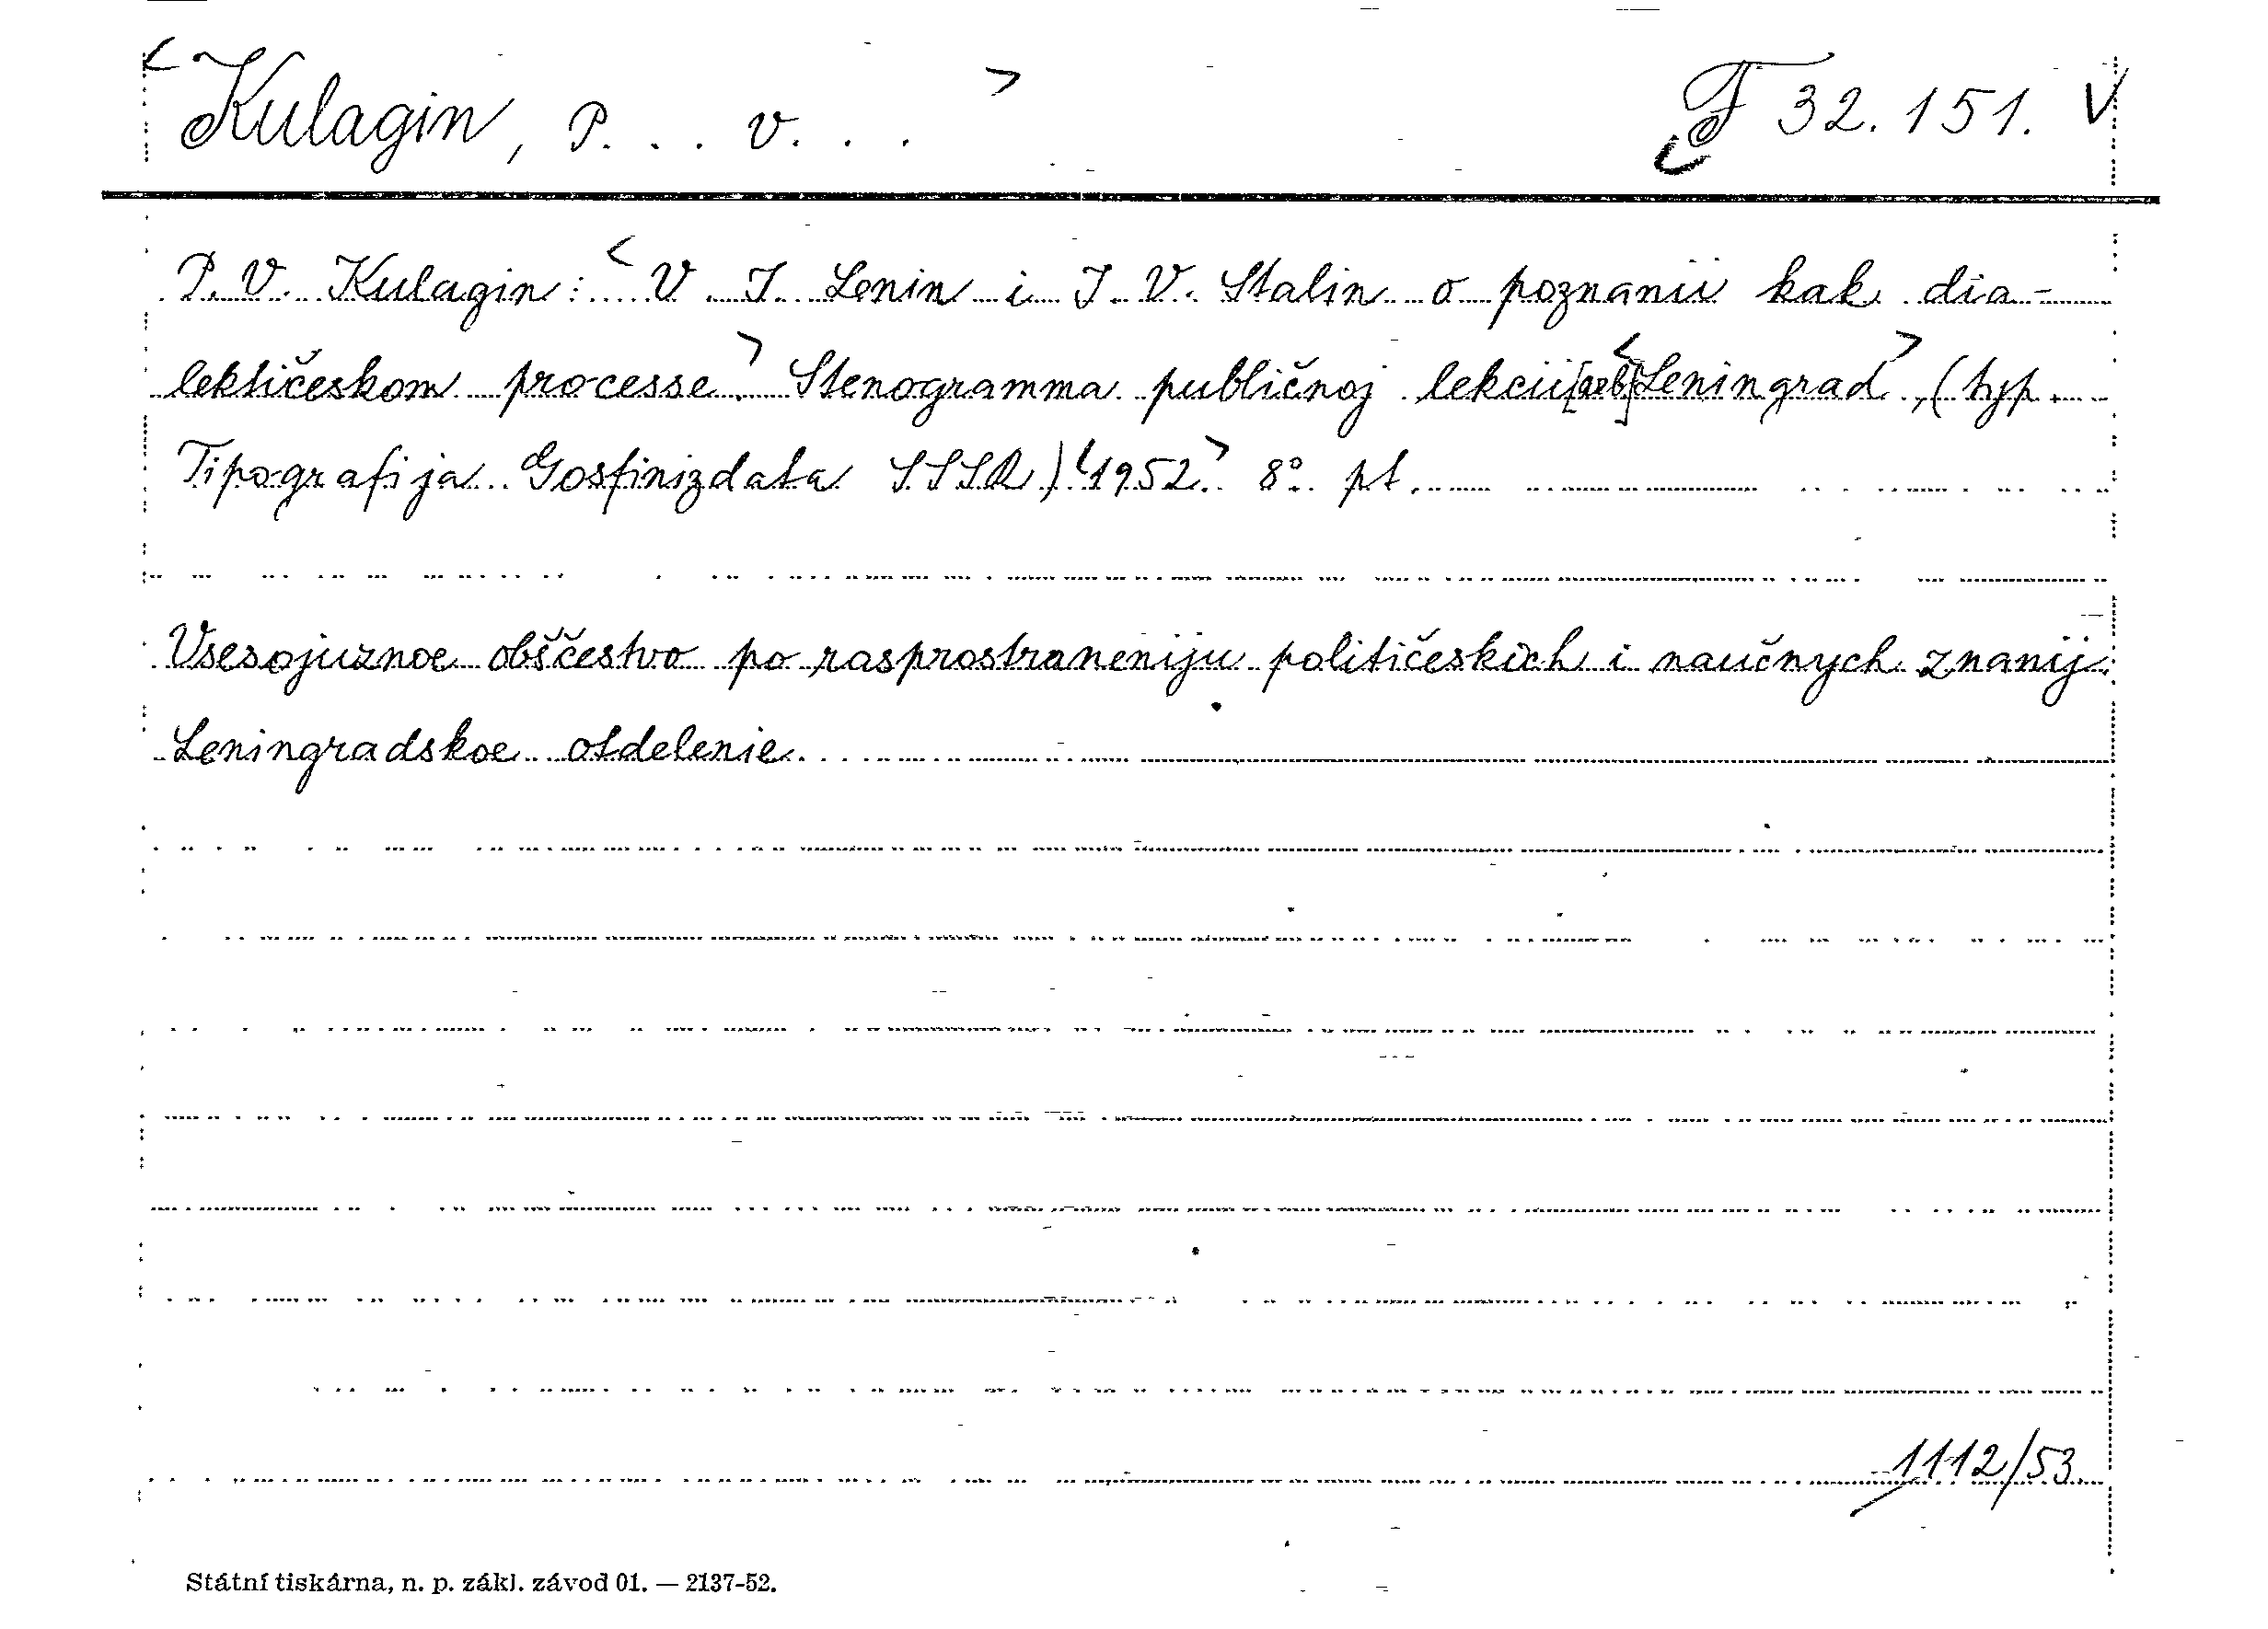 <Kulagin, P... V...> F 32.151. V
P. V. Kulagin: <V. I. Lenin i I. V. Stalin o poznanii kak dia-
lektičeskom processe.> Stenogramma publičnoj lekcii <Leningrad>, (typ.
Tipografija Gosfinizdata SSSR) <1952.> 8° pt.
Vsesojuznoe obščestvo po rasprostraneniju političeskich i naučnych znanij.
Leningradskoe otdelenie.
1112/53.
Státní tiskárna, n. p. zákl. závod 01. — 2137-52.